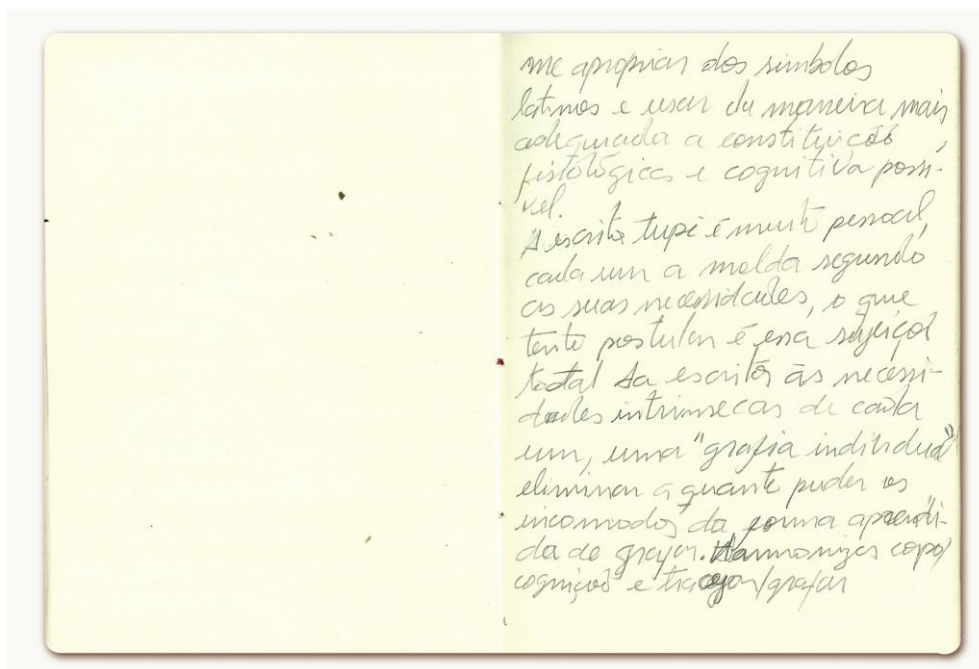 me apropriar dos simbolos
latinos e usar da maneira mais
adequada a constituição
fisiológica e cognitiva possi-
vel.
A escrita tupi é muito pessoal,
cada um a molda segundo
as suas necessidades, o que
tento postular é essa sujeição
total da escrita às necessi-
dades intrinsecas de cada
um, uma "grafia individual"
eliminar a quanto puder os
incomodos da forma aprendi-
da de grafar. Harmonizar corpo/
cognição e traçar/grafar